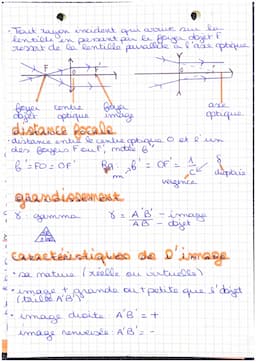 • Tout rayon incident qui arrive sur la
lentille en passant par le foyer objet F
ressort de la lentille parallèle à l'axe optique
F O F'
foyer objet centre optique foyer image axe optique
distance focale
distance entre le centre optique O et l'un
des foyers F ou F', notée f'
f' = FO = OF' f' = OF' = 1/C δ
m vergence dioptrie
grandissement
γ : gamma γ = A'B' - image
AB - objet
caractéristiques de l'image
• sa nature (réelle ou virtuelle)
• image + grande ou + petite que l'objet
(taille A'B')
• image droite A'B' = +
image renversée A'B' = -